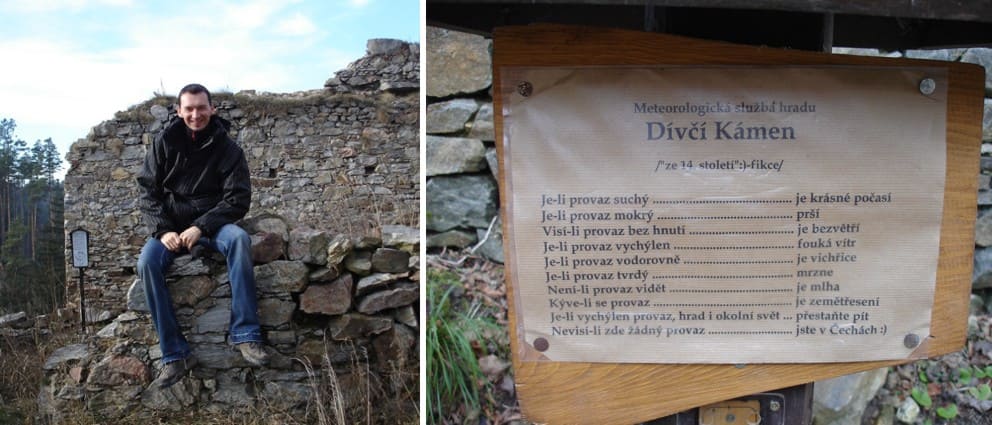 Meteorologická služba hradu
Dívčí Kámen
/"ze 14 století":)-fikce/
Je-li provaz suchý ........................................ je krásné počasí
Je-li provaz mokrý ....................................... prší
Visí-li provaz bez hnutí ............................... je bezvětří
Je-li provaz vychýlen ................................... fouká vítr
Je-li provaz vodorovně ................................ je vichřice
Je-li provaz tvrdý ......................................... mrzne
Není-li provaz vidět ..................................... je mlha
Kýve-li se provaz .......................................... je zemětřesení
Je-li vychýlen provaz, hrad i okolní svět ... přestaňte pít
Nevisí-li zde žádný provaz ........................ jste v Čechách :)